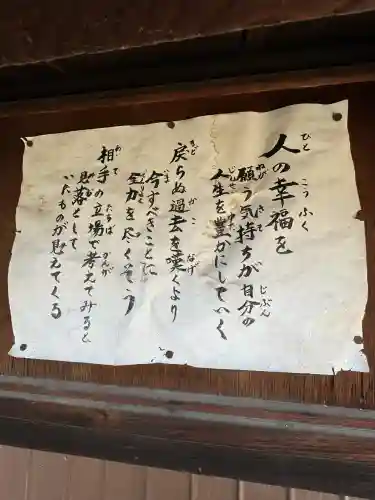 人の幸福を
願う気持ちが自分の
人生を豊かにしていく
戻らぬ過去を嘆くより
今すべきことに
全力を尽くそう
相手の立場で考えてみると
見落として
いたものが見えてくる